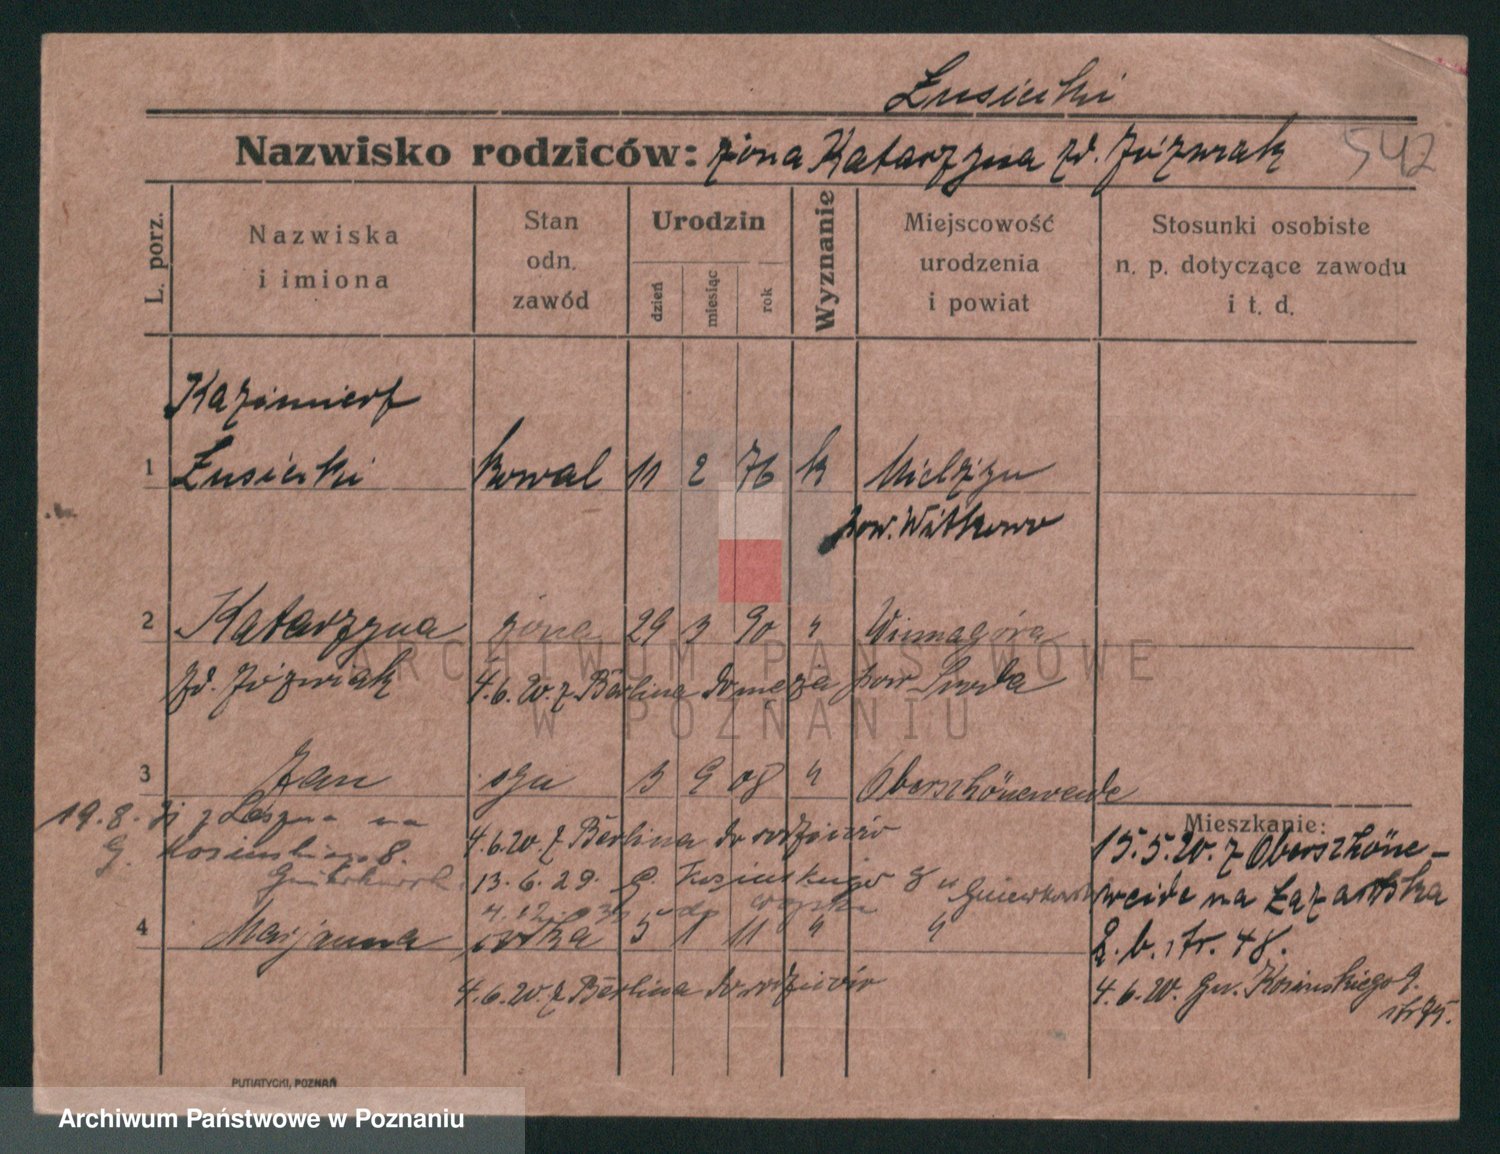 Łusiecki
Nazwisko rodziców: żona Katarzyna zd. Józwiak 542
L. porz.
Nazwiska i imiona
Stan odn. zawód
Urodzin
dzień
miesiąc
rok
Wyznanie
Miejscowość urodzenia i powiat
Stosunki osobiste n. p. dotyczące zawodu i t. d.
Kazimierz
1 Łusiecki kowal 11 2 76 k Mielżyn
pow. Witkowo
2 Katarzyna żona 29 3 90 " Winnagóra
zd. Józwiak 4.6.20. z Berlina do męża pow Środa
3 Jan syn 3 9 08 " Oberschöneweide
19.8. z Leszna na
4.6.20. z Berlina do rodziców
G. 8.
13.6.29. G. Kosińskiego 8
4.12. do wojska
4 Marjanna córka 5 1 11 " "
4.6.20. z Berlina do rodziców
Mieszkanie:
15.5.20. z Oberschöne-
weide na Łazarska
2. b. str. 48.
4.6.20. Gn. Kosińskiego 9.
str 95.
PUTIATYCKI, POZNAŃ
ARCHIWUM PAŃSTWOWE
W POZNANIU
Archiwum Państwowe w Poznaniu